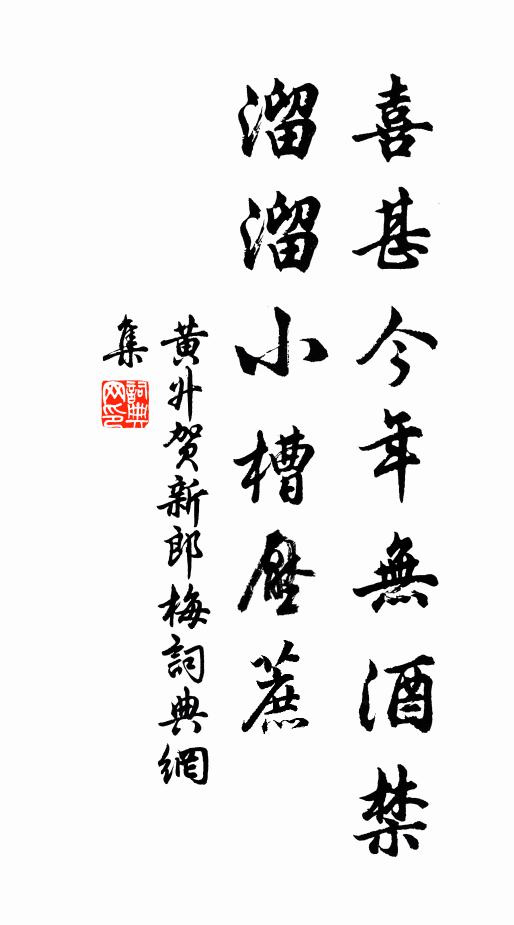 喜甚今年無酒禁
溜溜小槽壓蔗
黄升贺新郎梅詞典網
集
詞典
网印